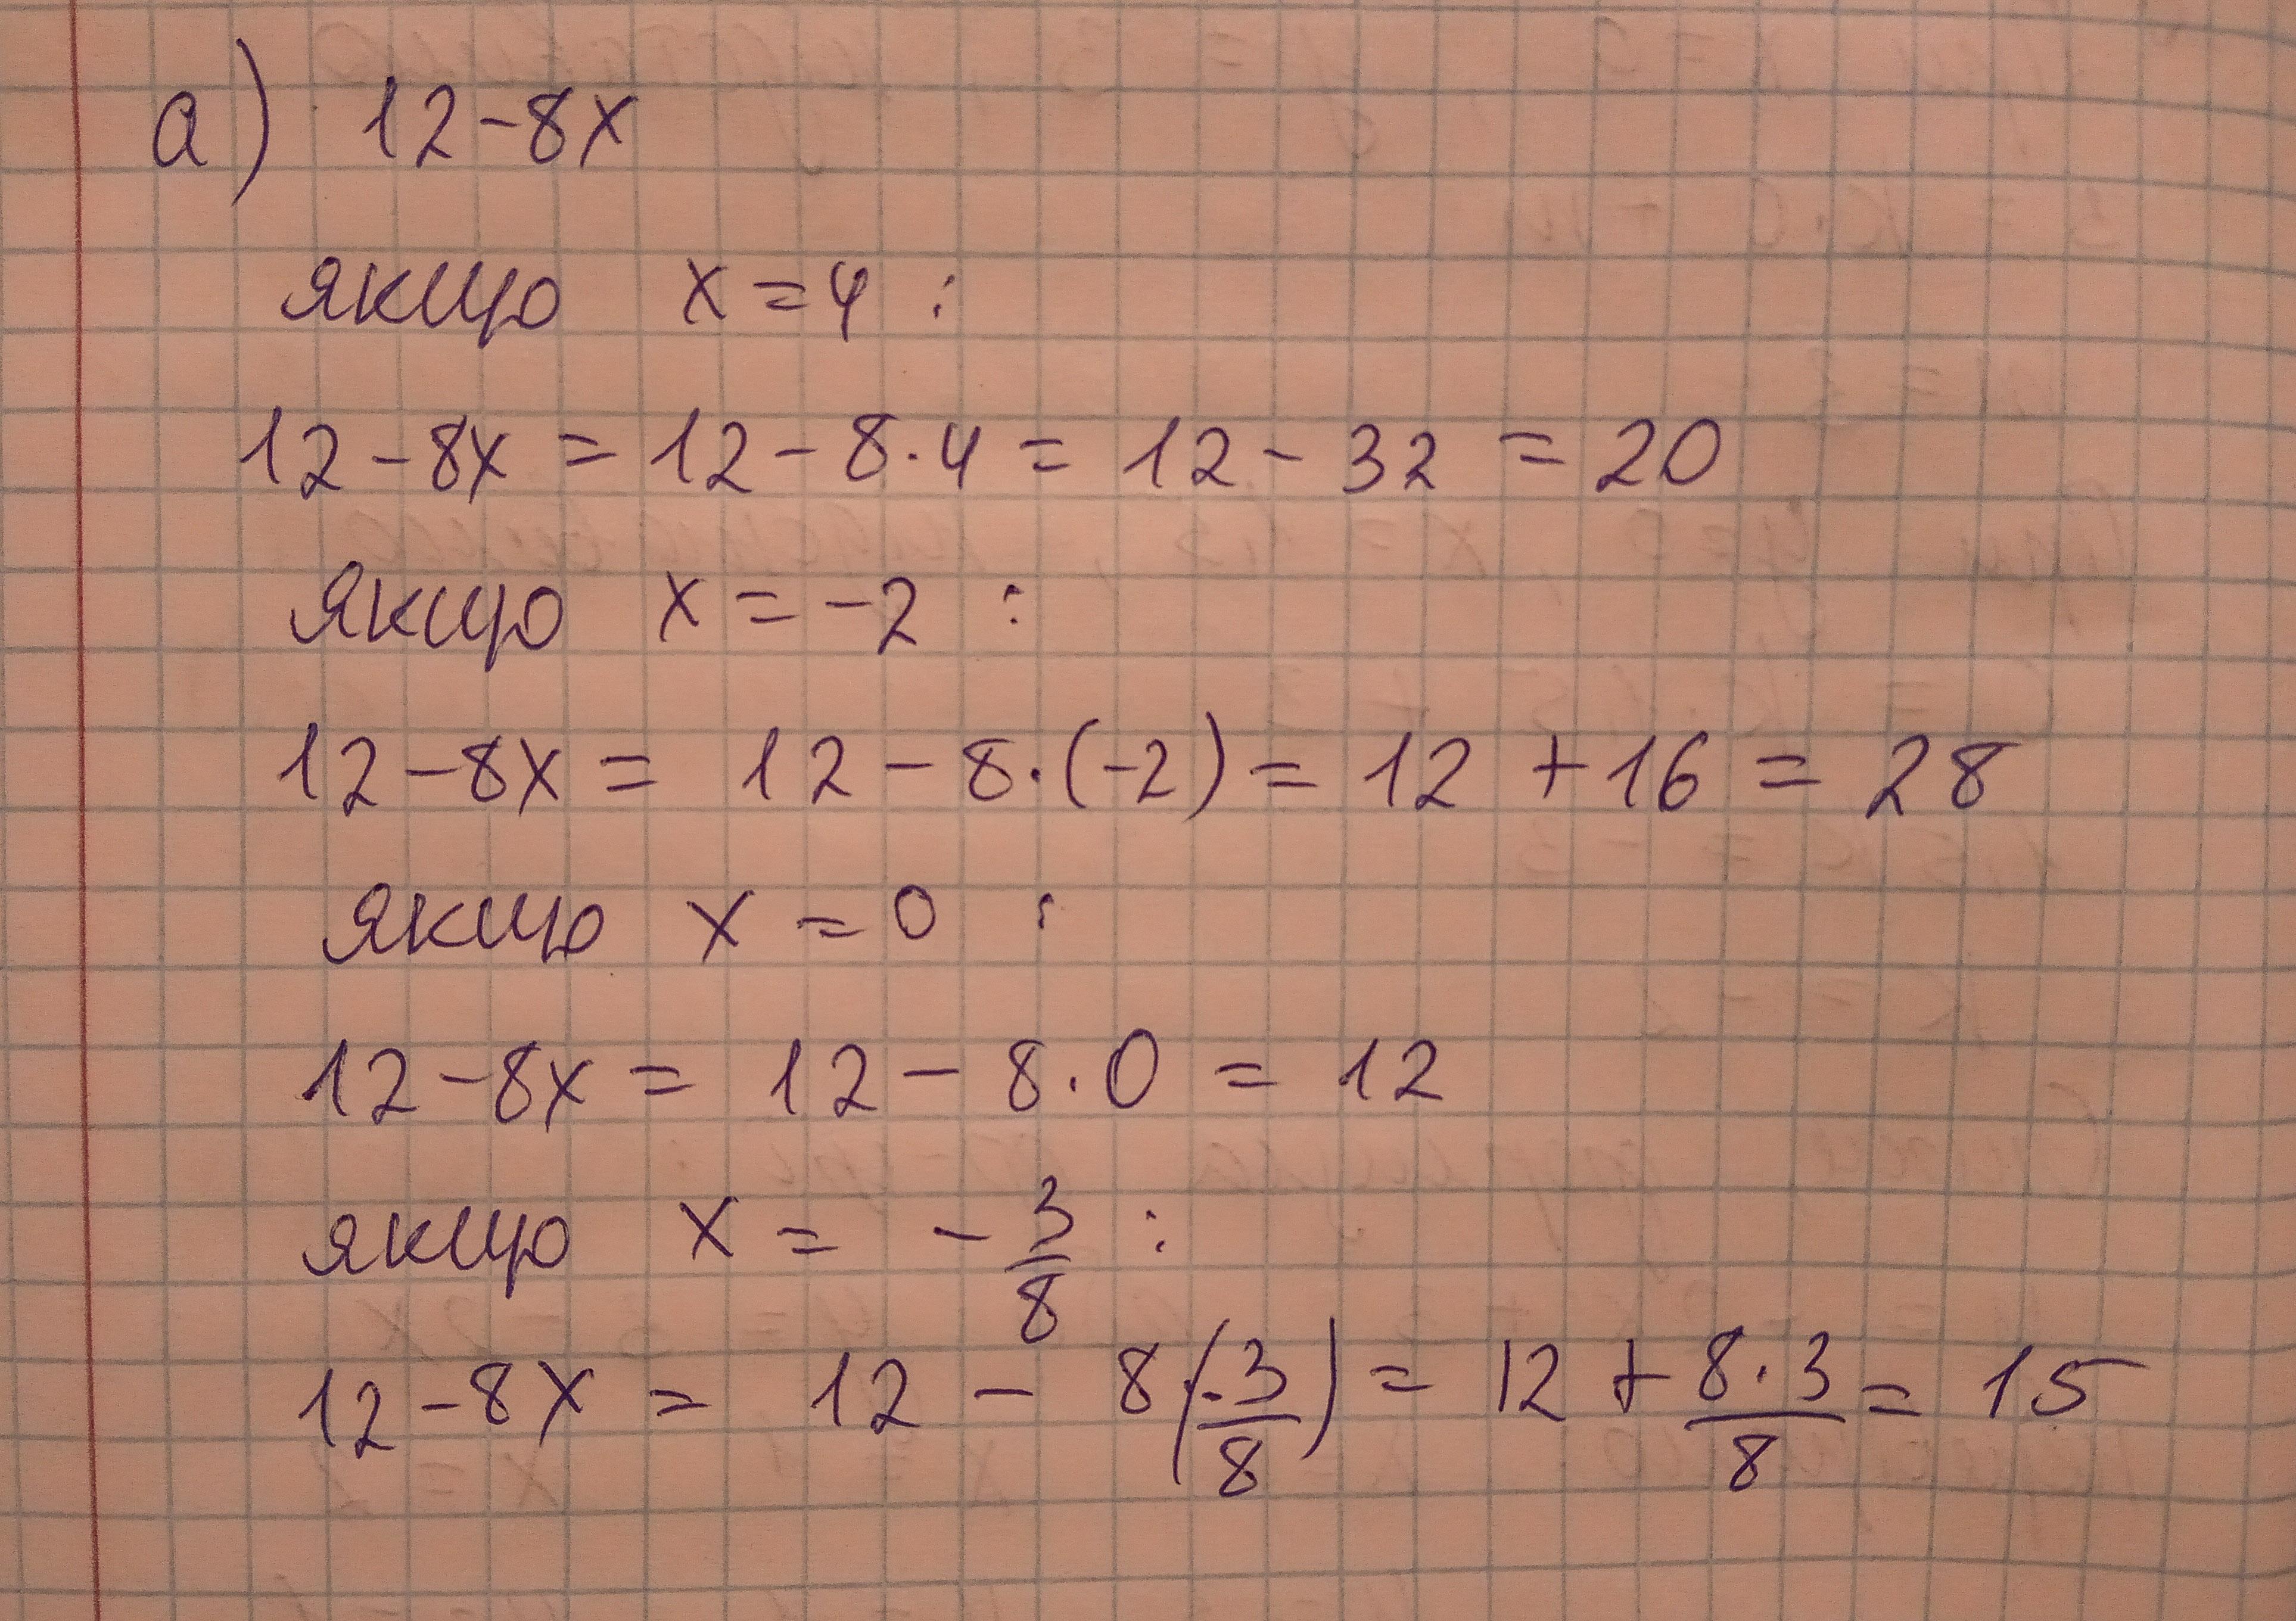 а) 12-8x
якщо x=4:
12-8x = 12-8·4 = 12-32 = 20
Якщо x=-2:
12-8x = 12-8·(-2) = 12+16 = 28
якщо x=0:
12-8x = 12-8·0 = 12
якщо x = -3/8:
12-8x = 12 - 8·(-3/8) = 12 + 8·3/8 = 15